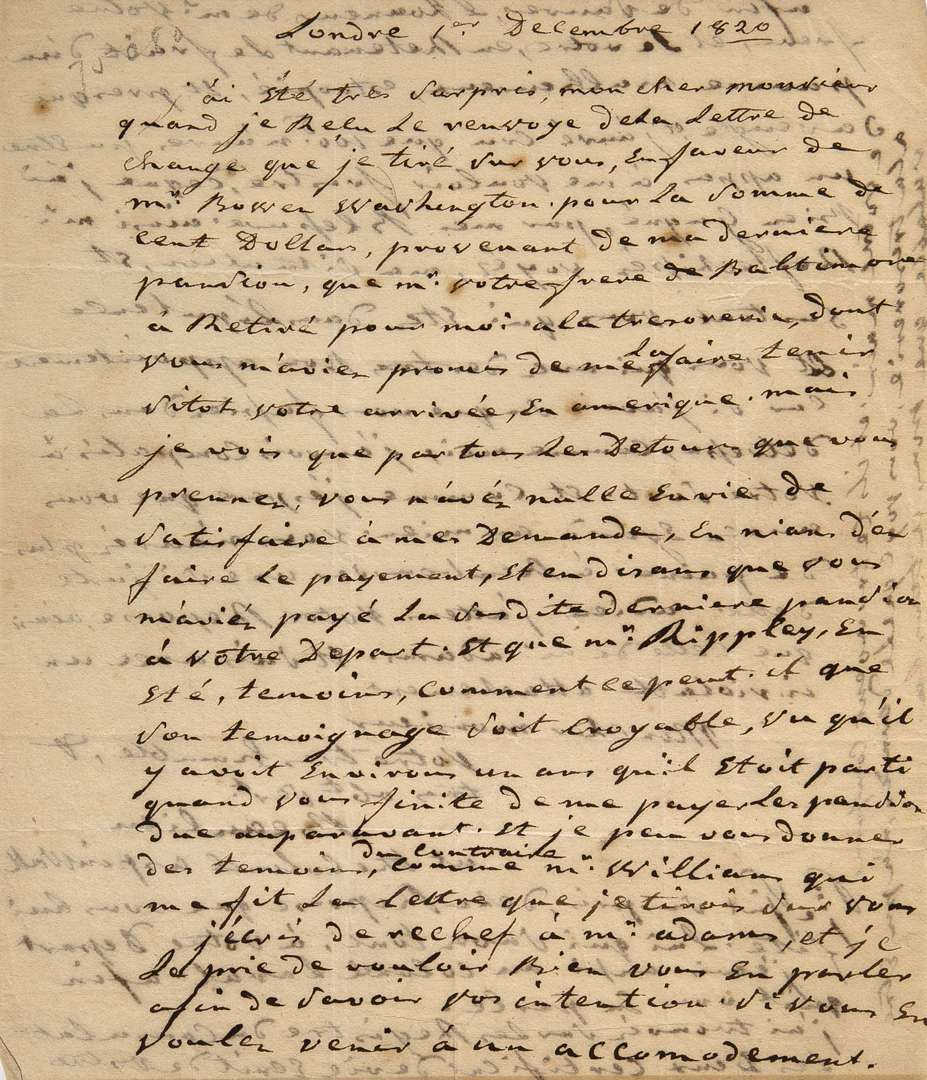 Londre 1er Decembre 1820
j'ai été très surpris, mon cher monsieur
quand je Relu Le renvoye dela Lettre de
change que je tiré sur vous, En faveur de
mr. Bowen Washington. pour La somme de
cent Dollars, provenant de ma derniere
pansion, que mr. votre frere de Baltimore
à Retiré pour moi ala tresorerie, dont
vous m'aviez promis de me la faire tenir
sitot votre arrivée, En amerique. mais
je vois que par tous Les Detours que vous
prennez, vous n'avéz nulle Envie de
satisfaire à mes Demande, En nians d'en
faire Le payement, Et en disans que vous
m'aviéz payé La susdite derniere pansion
à votre Depart. Et que mr. Rippley, En
Eté, temoins, comment ce peut-il que
son temoignage soit Croyable, vu qu'il
y avoit Environs un ans qu'il Etoit parti
quand vous finite de me payer Les pansion
due auparavant. Et je peu vous donner
des temoins, du contraire comme mr. Williams qui
me fit La Lettre que je tirois sur vous
j'écris de rechef à mr. adams, et je
Le prie de vouloir Bien vous En parler
afin de savoir vos intention. si vous En
voulez venir à un accomodement.